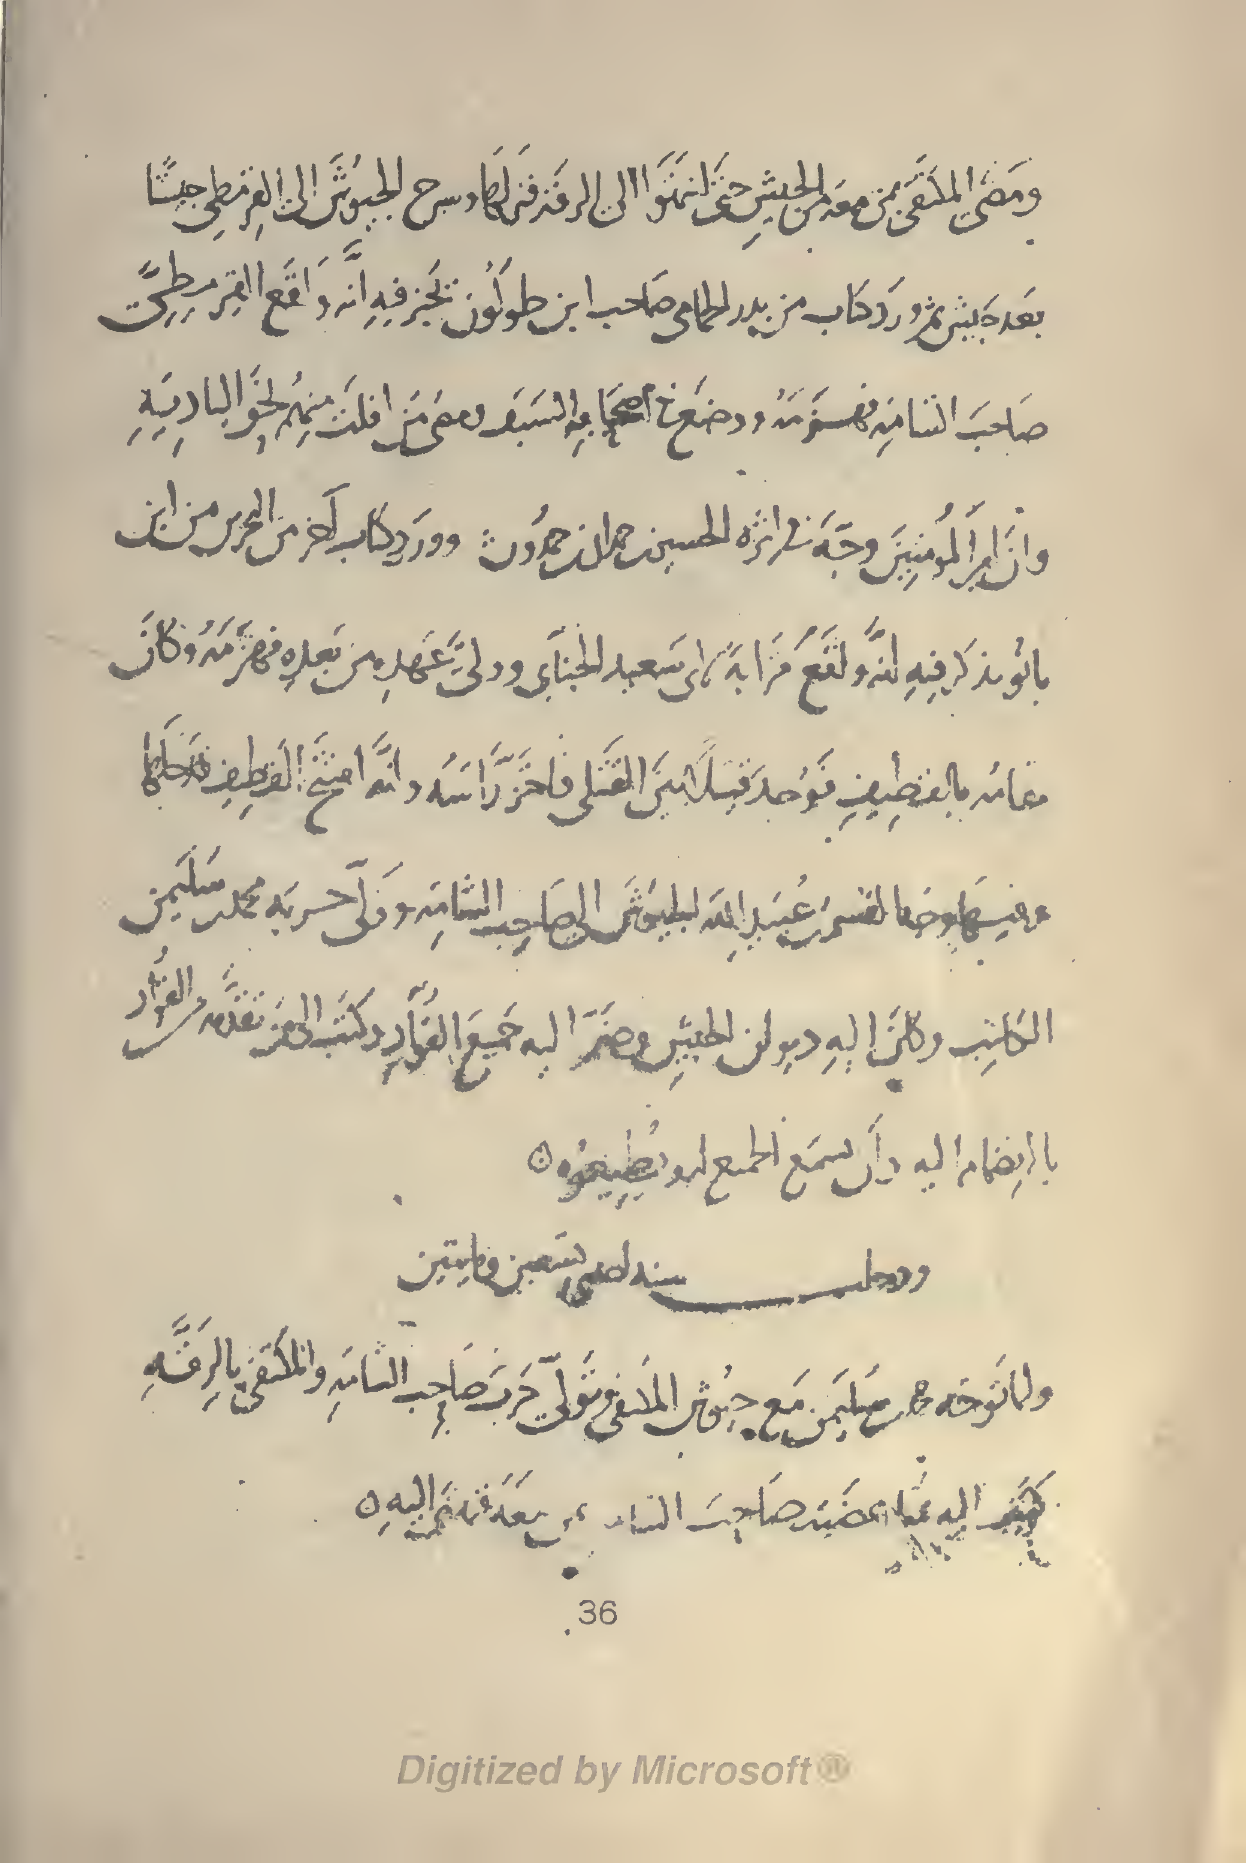 ومضى المكتفي بمن معه من الجيش حتى انتهوا الى الرقة فنزلها وسرح الجيوش الى القرمطي جيشا
بعد جيش ثم ورد كتاب من بدر الحمامي صاحب ابن طولون يخبر فيه انه واقع القرمطي
صاحب الشامة فهزمه ووضع في اصحابه السيف ومضى من افلت منهم نحو البادية
وان امير المؤمنين وجه في اثره الحسين بن حمدان بن حمدون وورد كتاب آخر من البحرين من ابن
بانو يذكر فيه انه واقع قرابة لابي سعيد الجنابي وولي عهده من بعده فهزمه وكان
مقامه بالقطيف فوجد قتيلا بين القتلى فاحتز رأسه وانه افتتح القطيف فدخلها
وفيها وجه القسم بن عبيد الله الجيوش الى صاحب الشامة وولى حربه محمد بن سليمن
الكاتب وكان اليه ديوان الجيش وضم اليه جميع القواد وكتب الى من تقدمه من القواد
بالانضمام اليه وان يسمع الجميع له ويطيعوه ٥
ودخلت سنه احدى وتسعين ومايتين
ولما توجه محمد بن سليمن مع جيوش المكتفي وتولى حرب صاحب الشامة والمكتفي بالرقة
كتب اليه صاحب معه اليه ٥
36
Digitized by Microsoft®